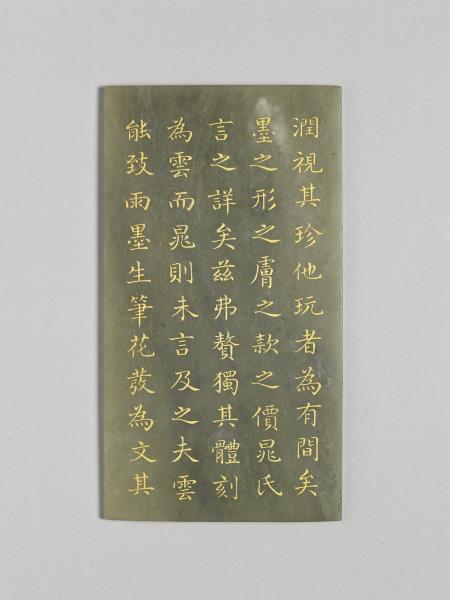 潤視其珍他玩者為有間矣
墨之形之膚之款之價晁氏
言之詳矣茲弗贅獨其體刻
為雲而晁則未言及之夫雲
能致雨墨生筆花發為文其